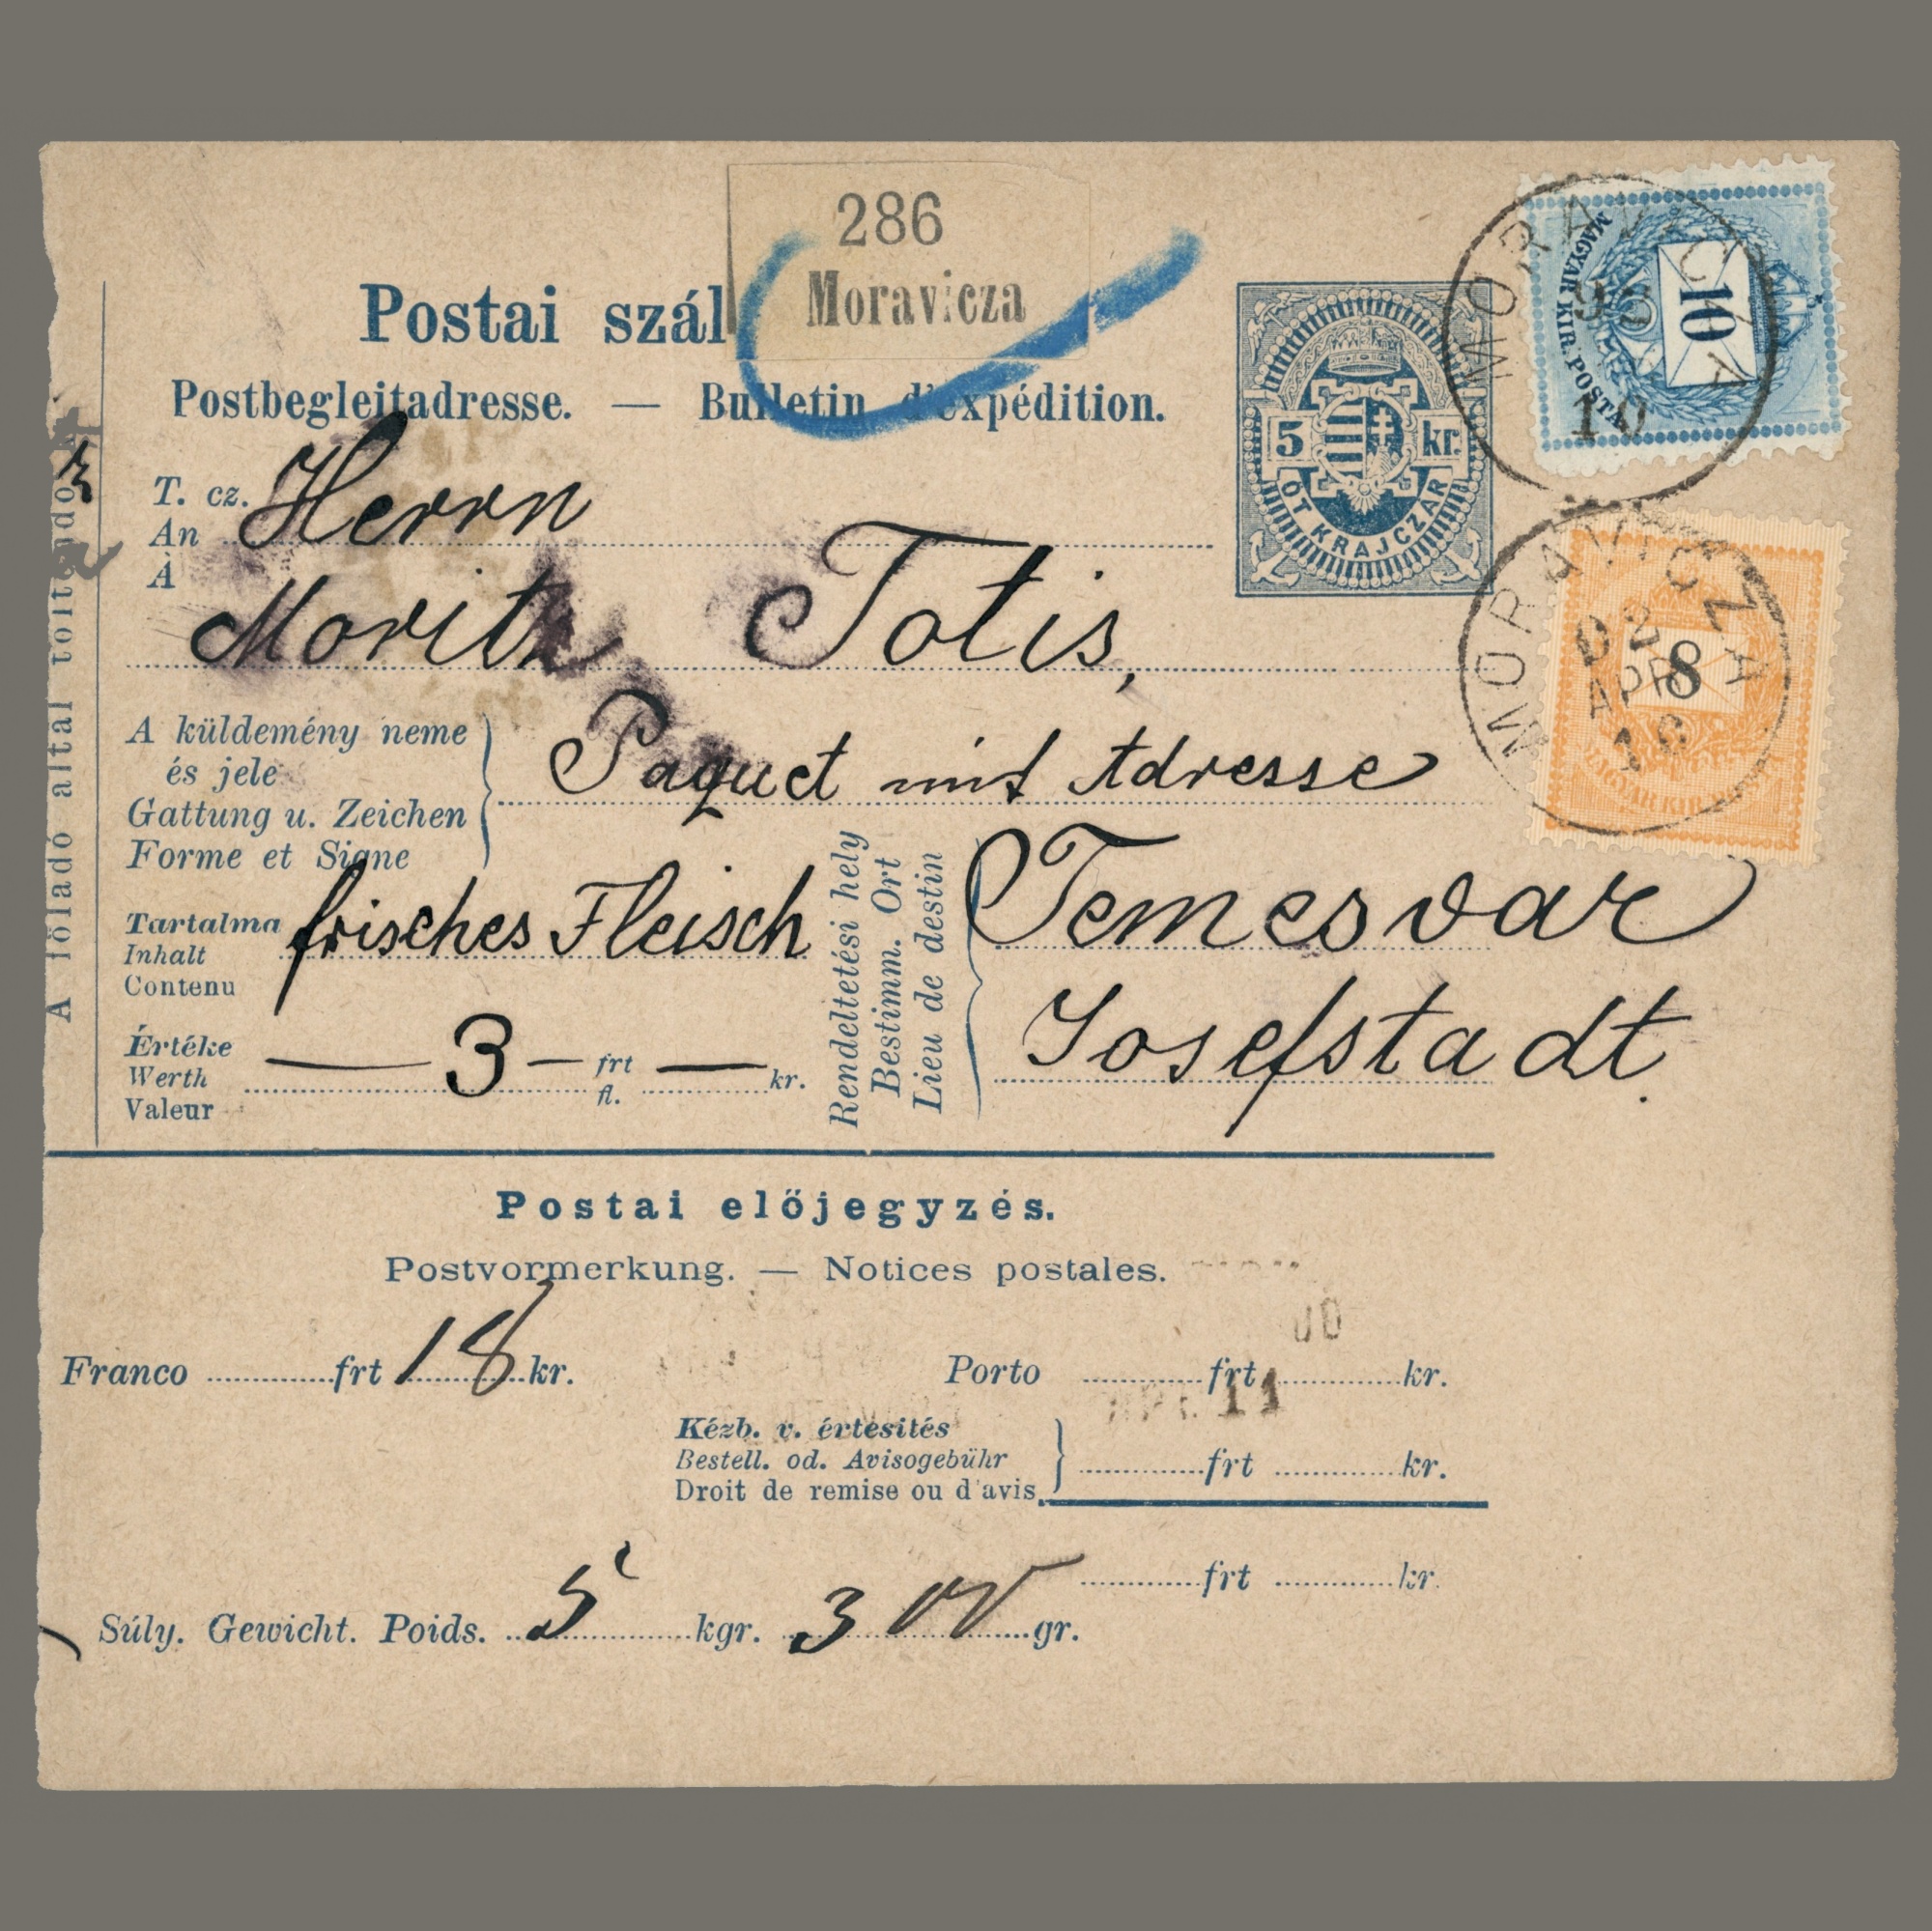 286
Moravicza
Postai szál
Postbegleitadresse. — Bulletin d'expédition.
10
MAGYAR KIR. POSTA
MORAVICZA
10
5 kr.
ÖT KRAJCZÁR
T. cz.
An
À
Herrn
Moritz Totis,
8
MORAVICZA
APR
A küldemény neme
és jele
Gattung u. Zeichen
Forme et Signe
Paquet mit Adresse
Tartalma
Inhalt
Contenu
frisches Fleisch
Értéke
Werth
Valeur
— 3 — frt
fl. — kr.
Rendeltetési hely
Bestimm. Ort
Lieu de destin
Temesvar
Josefstadt.
A föladó által
Postai előjegyzés.
Postvormerkung. — Notices postales.
Franco frt 18 kr.
Porto frt kr.
11
Kézb. v. értesités
Bestell. od. Avisogebühr
Droit de remise ou d'avis.
frt kr.
frt kr.
Súly. Gewicht. Poids. 5 kgr. 300 gr.